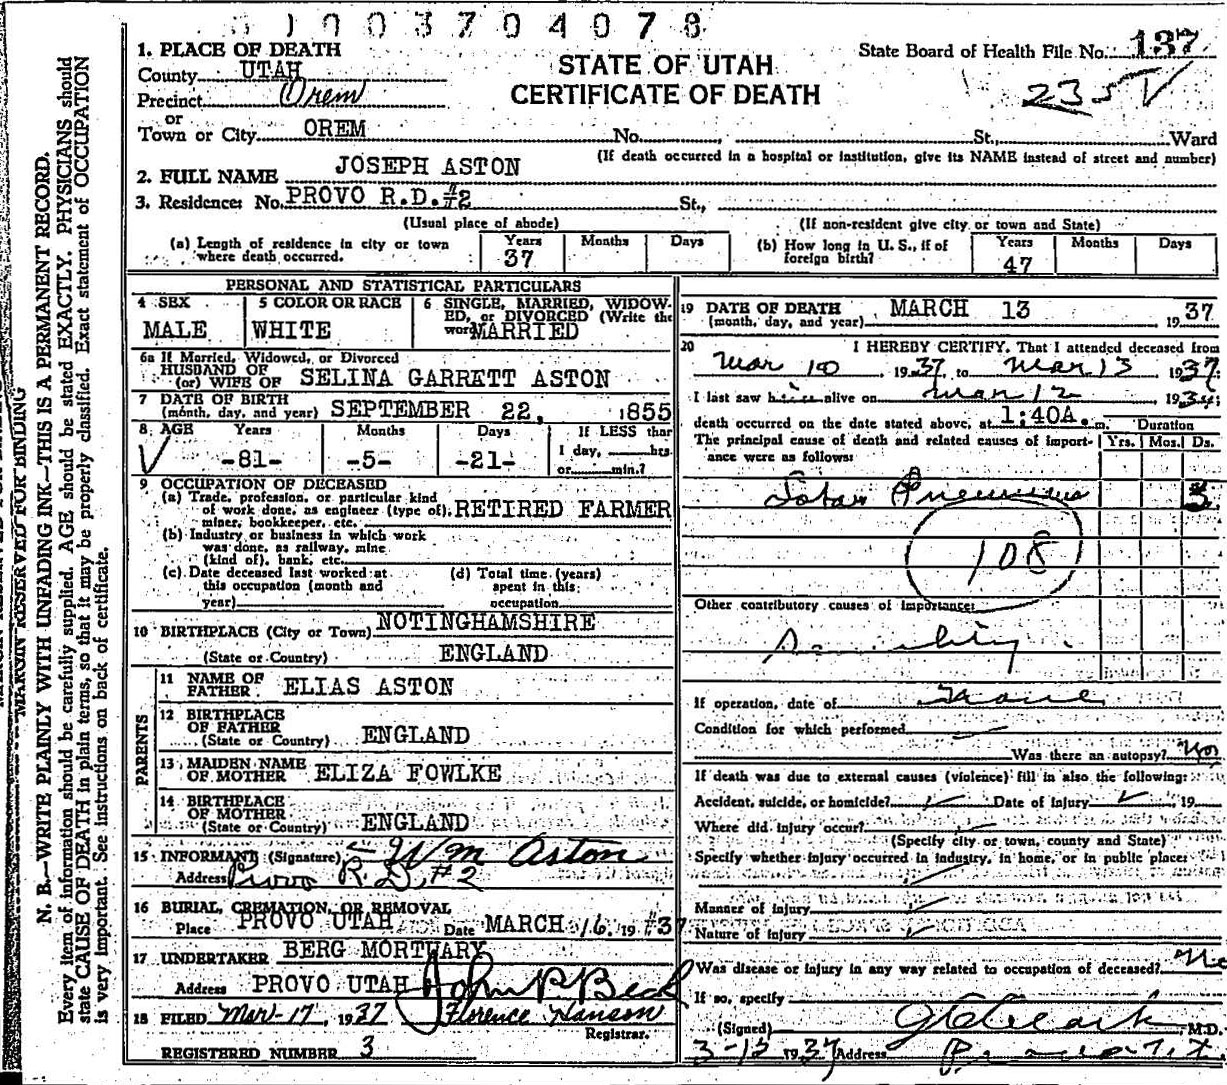 1003704078
1. PLACE OF DEATH
County UTAH
Precinct Orem
or
Town or City OREM No. St., Ward
STATE OF UTAH
CERTIFICATE OF DEATH
State Board of Health File No. 137
235 V
(If death occurred in a hospital or institution, give its NAME instead of street and number)
2. FULL NAME JOSEPH ASTON
3. Residence: No. PROVO R.D. #2 St.,
(Usual place of abode) (If non-resident give city or town and State)
(a) Length of residence in city or town where death occurred. Years 37 Months Days
(b) How long in U. S., if of foreign birth? Years 47 Months Days
PERSONAL AND STATISTICAL PARTICULARS
4 SEX MALE
5 COLOR OR RACE WHITE
6 SINGLE, MARRIED, WIDOWED, or DIVORCED (Write the word) MARRIED
6a If Married, Widowed, or Divorced
HUSBAND OF
(or) WIFE OF SELINA GARRETT ASTON
7 DATE OF BIRTH
(month, day, and year) SEPTEMBER 22, 1855
8 AGE Years Months Days If LESS than
-81- -5- -21- 1 day, hrs.
or min.?
9 OCCUPATION OF DECEASED
(a) Trade, profession, or particular kind
of work done, as engineer (type of), RETIRED FARMER
miner, bookkeeper, etc.
(b) Industry or business in which work
was done, as railway, mine
(kind of), bank, etc.
(c) Date deceased last worked at
this occupation (month and
year)
(d) Total time (years)
spent in this
occupation
10 BIRTHPLACE (City or Town) NOTINGHAMSHIRE
(State or Country) ENGLAND
PARENTS
11 NAME OF
FATHER ELIAS ASTON
12 BIRTHPLACE
OF FATHER
(State or Country) ENGLAND
13 MAIDEN NAME
OF MOTHER ELIZA FOWLKE
14 BIRTHPLACE
OF MOTHER
(State or Country) ENGLAND
15 INFORMANT (Signature) Wm Aston
Address Provo R. D. #2
16 BURIAL, CREMATION, OR REMOVAL
Place PROVO UTAH Date MARCH 16. 19 #37
17 UNDERTAKER BERG MORTUARY
Address PROVO UTAH John P Beck
18 FILED Mar-17, 1937 Florence Hanson
Registrar.
REGISTERED NUMBER 3
19 DATE OF DEATH
(month, day, and year) MARCH 13 1937
20 I HEREBY CERTIFY, That I attended deceased from
Mar 10 1937 to Mar 13 1937;
I last saw him alive on Mar 12 193
death occurred on the date stated above, at 1:40A. m. Duration
The principal cause of death and related causes of importance were as follows: Yrs. Mos. Ds.
Lobar Pneumonia 3
108
Other contributory causes of importance:
Senility
If operation, date of None
Condition for which performed
Was there an autopsy? No
If death was due to external causes (violence) fill in also the following:
Accident, suicide, or homicide? Date of injury 19
Where did injury occur?
(Specify city or town, county and State)
Specify whether injury occurred in industry, in home, or in public place:
Manner of injury
Nature of injury
Was disease or injury in any way related to occupation of deceased? No
If so, specify
(Signed) Clark M.D.
1937 Address
MARGIN RESERVED FOR BINDING
N. B.—WRITE PLAINLY WITH UNFADING INK—THIS IS A PERMANENT RECORD.
Every item of information should be carefully supplied. AGE should be stated EXACTLY. PHYSICIANS should
state CAUSE OF DEATH in plain terms, so that it may be properly classified. Exact statement of OCCUPATION
is very important. See instructions on back of certificate.